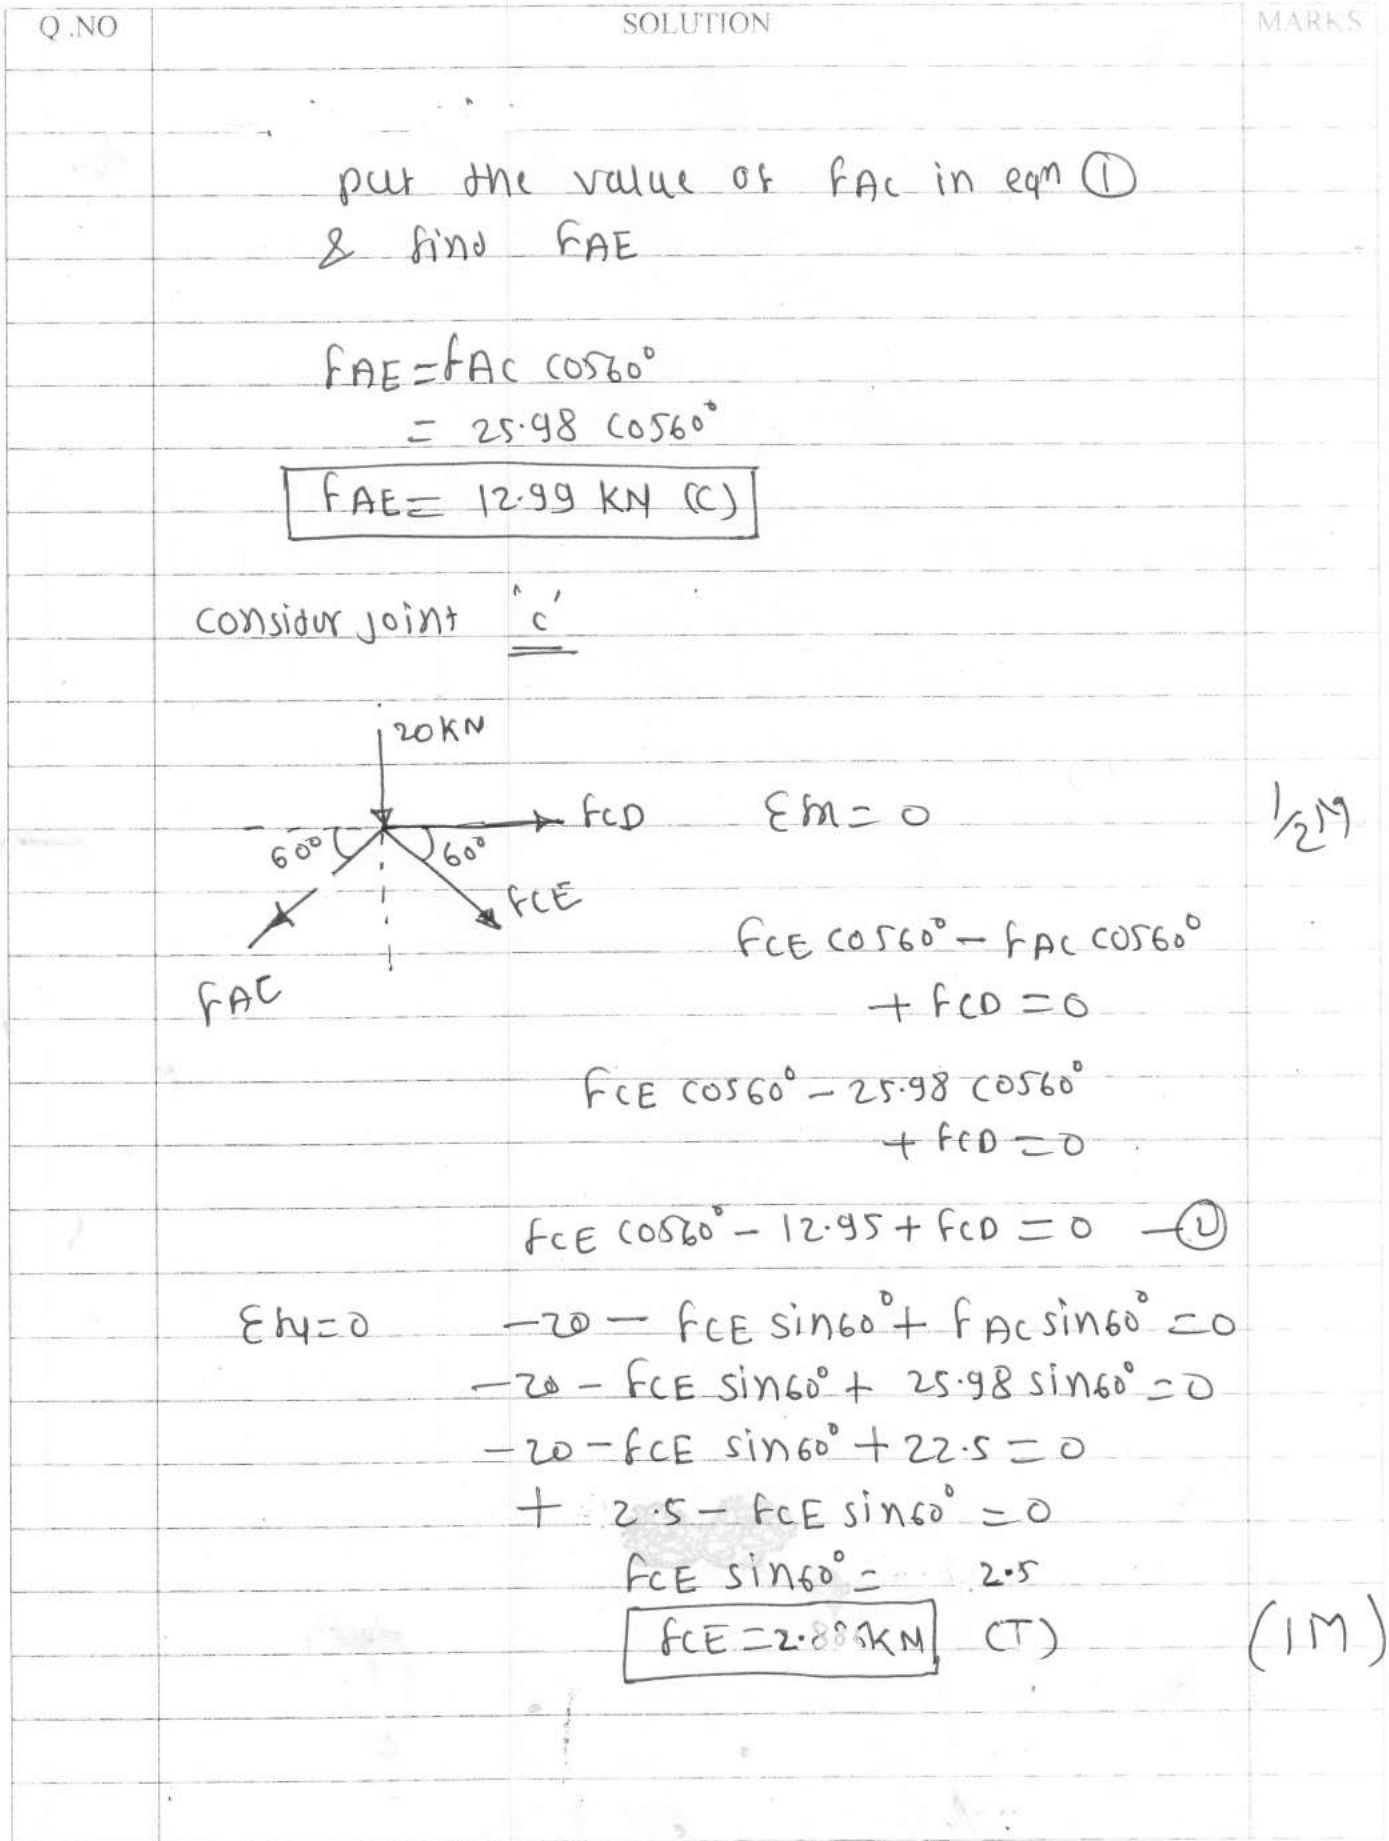 Q.NO SOLUTION MARKS
put the value of FAC in eqn ①
& find FAE
FAE = FAC cos60°
= 25.98 cos60°
FAE = 12.99 KN (C)
Considur joint 'c'
20KN
60° 60° FCD
FCE
FAC
½M
FCE cos60° - FAC cos60°
+ FCD = 0
FCE cos60° - 25.98 cos60°
+ FCD = 0
FCE cos60° - 12.95 + FCD = 0
-20 - FCE sin60° + FAC sin60° = 0
-20 - FCE sin60° + 25.98 sin60° = 0
-20 - FCE sin60° + 22.5 = 0
+ 2.5 - FCE sin60° = 0
FCE sin60° = 2.5
FCE = 2.886KN (T) (1M)